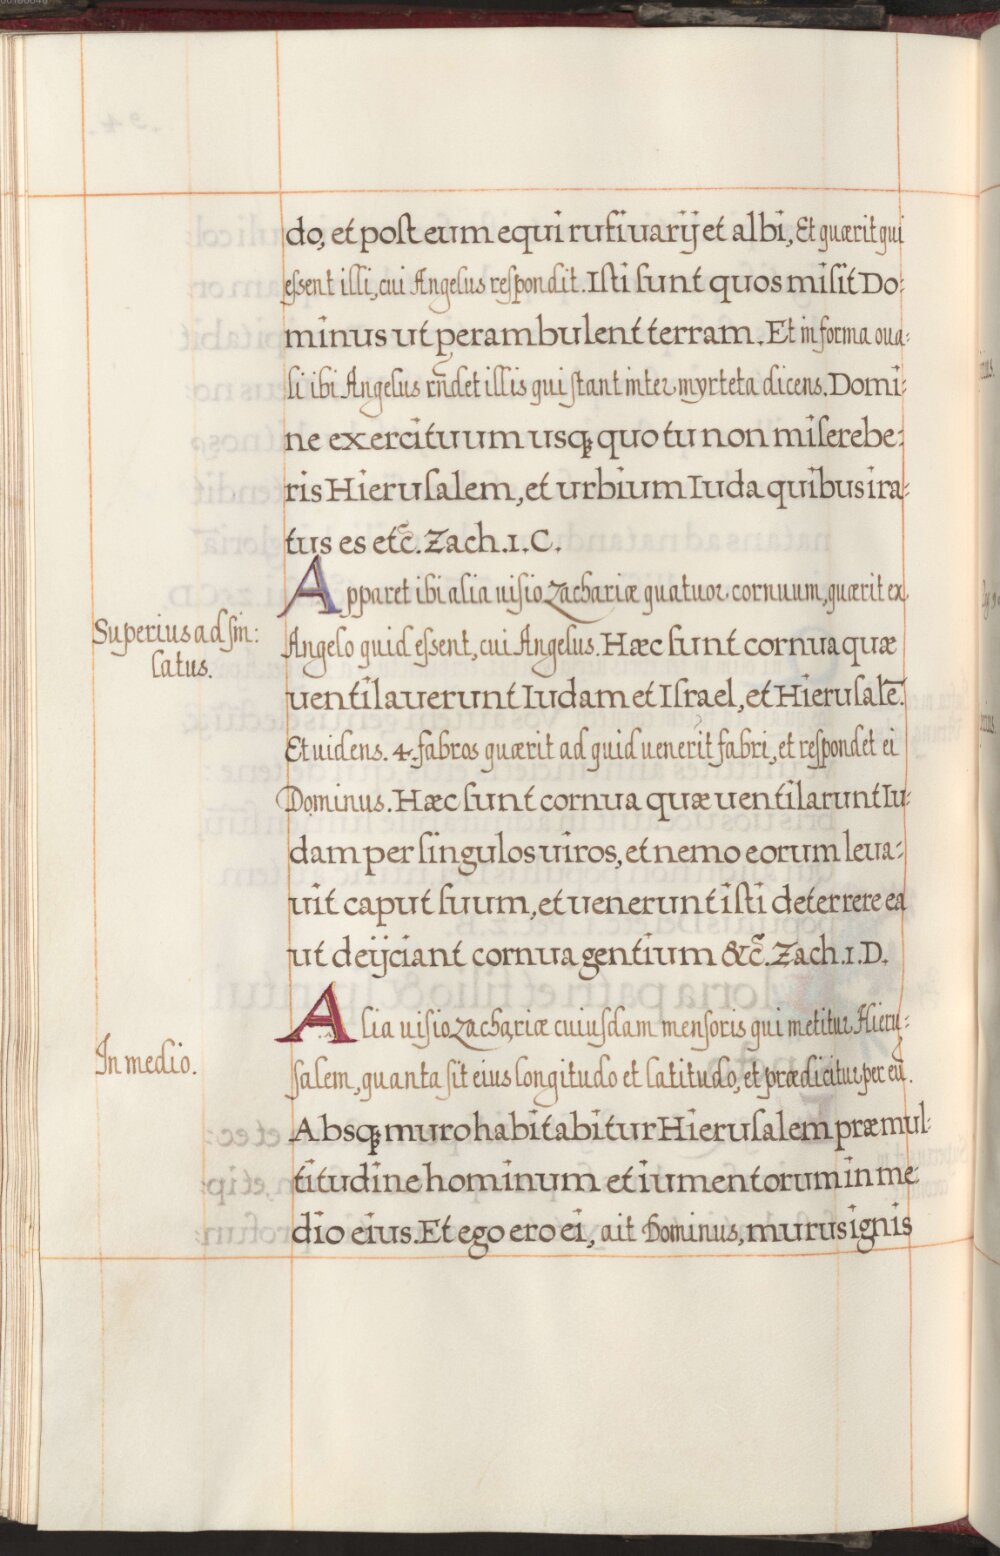 do, et post eum equi rufi uarij et albi, Et quærit qui
essent illi, cui Angelus respondit. Isti sunt quos misit Do:
minus ut perambulent terram. Et in forma oua:
li ibi Angelus rn̄det illis qui stant inter myrteta dicens. Domi:
ne exercituum usq; quo tu non miserebe:
ris Hierusalem, et urbium Iuda quibus ira:
tus es etc̄. Zach. 1. C.
Apparet ibi alia uisio Zachariæ quatuor cornuum, quærit ex
Superius ad sin:
latus.
Angelo quid essent, cui Angelus. Hæc sunt cornua quæ
uentilauerunt Iudam et Israel, et Hierusalē.
Et uidens. 4. fabros quærit ad quid uenerit fabri, et respondet ei
Dominus. Hæc sunt cornua quæ uentilarunt Iu:
dam per singulos uiros, et nemo eorum leua:
uit caput suum, et uenerunt isti deterrere ea
ut deijciant cornua gentium &c̄. Zach. 1. D.
Alia uisio Zachariæ cuiusdam mensoris qui metitur Hieru:
In medio.
salem, quanta sit eius longitudo et latitudo, et prædicitur per eū.
Absq; muro habitabitur Hierusalem præ mul:
titudine hominum et iumentorum in me:
dio eius. Et ego ero ei, ait Dominus, murus ignis